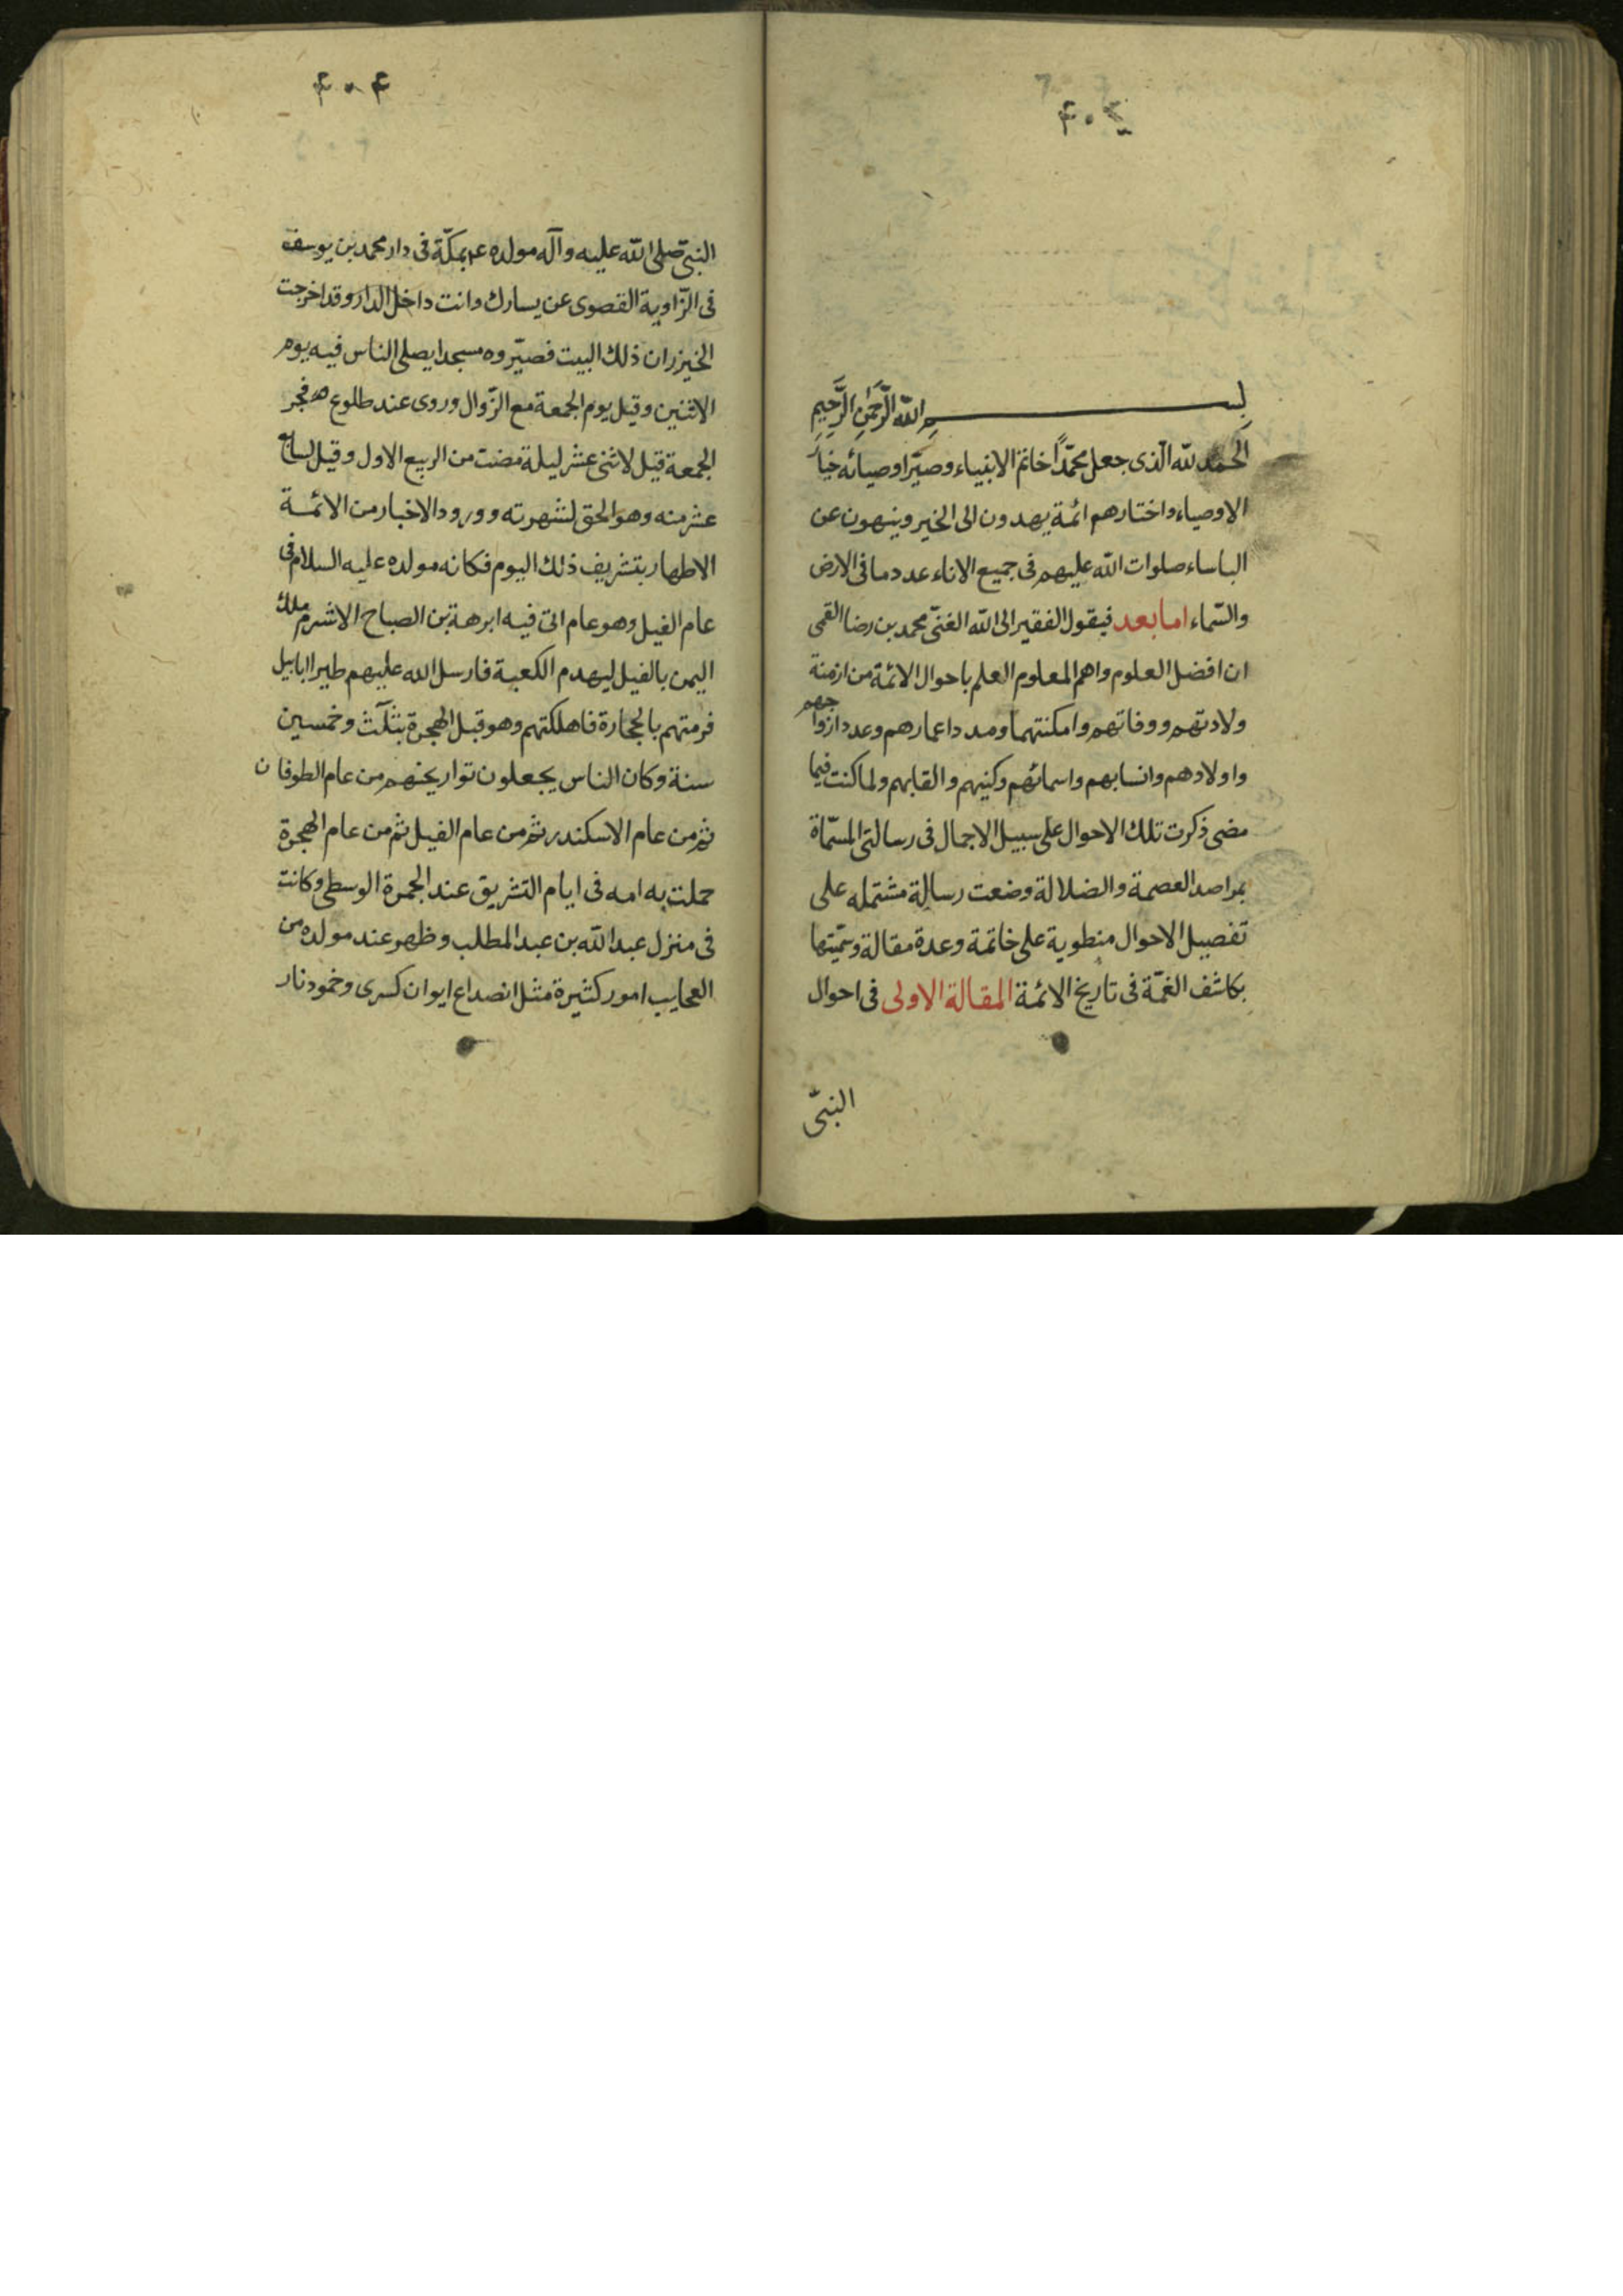 بسم الله الرَّحمٰنِ الرَّحِيمِ
الحمد لله الّذى جعل محمّدًا خاتم الانبياء وصيّر اوصيائه خيار
الاوصياء واختارهم ائمة يهدون الى الخير وينهون عن
الباساء صلوات الله عليهم فى جميع الاناء عدد ما فى الارض
والسّماء اما بعد فيقول الفقير الى الله الغنىّ محمد بن رضا القمى
ان افضل العلوم واهم المعلوم العلم باحوال الائمة من ازمنة
ولادتهم ووفاتهم وامكنتهما ومدد اعمارهم وعدد ازواجهم
واولادهم وانسابهم واسمائهم وكنيهم والقابهم ولما كنت فيما
مضى ذكرت تلك الاحوال على سبيل الاجمال فى رسالتى المسمّاة
بمراصد العصمة والضلالة وضعت رسالة مشتمله على
تفصيل الاحوال منطوية على خاتمة وعدة مقالة وسمّيتها
بكاشف الغمّة فى تاريخ الائمة المقالة الاولى فى احوال
النبىّ
۴۰۴
النبىّ صلى الله عليه وآله مولده ع بمكّة فى دار محمد بن يوسف
فى الزّاوية القصوى عن يسارك وانت داخل الدار وقد اخرجت
الخيزران ذلك البيت فصيّروه مسجدا يصلى الناس فيه يوم
الاثنين وقيل يوم الجمعة مع الزّوال وروى عند طلوع فجر
الجمعة قيل لاثنى عشر ليلة مضت من الربيع الاول وقيل لسابع
عشر منه وهو الحق لشهرته وورود الاخبار من الائمة
الاطهار بتشريف ذلك اليوم فكانه مولده عليه السلام فى
عام الفيل وهو عام اتى فيه ابرهة بن الصباح الاشرم ملك
اليمن بالفيل ليهدم الكعبة فارسل الله عليهم طيرا ابابيل
فرمتهم بالحجارة فاهلكتهم وهو قبل الهجرة بثلٰث وخمسين
سنة وكان الناس يجعلون تواريخهم من عام الطوفان
ثم من عام الاسكندر ثم من عام الفيل ثم من عام الهجرة
حملت به امه فى ايام التشريق عند الجمرة الوسطى وكانت
فى منزل عبد الله بن عبد المطلب وظهر عند مولده من
العجايب امور كثيرة مثل انصداع ايوان كسرى وخمود نار